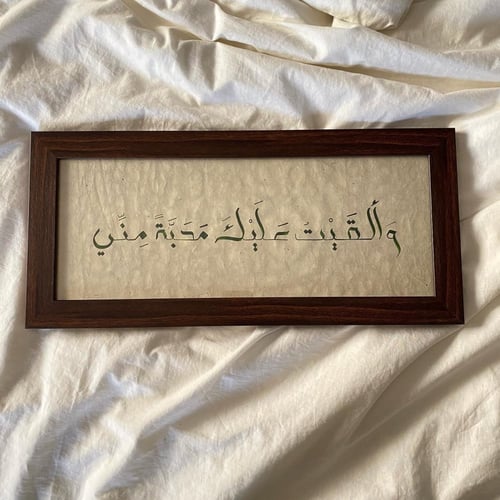 وَأَلْقَيْتُ عَلَيْكَ مَحَبَّةً مِنِّي